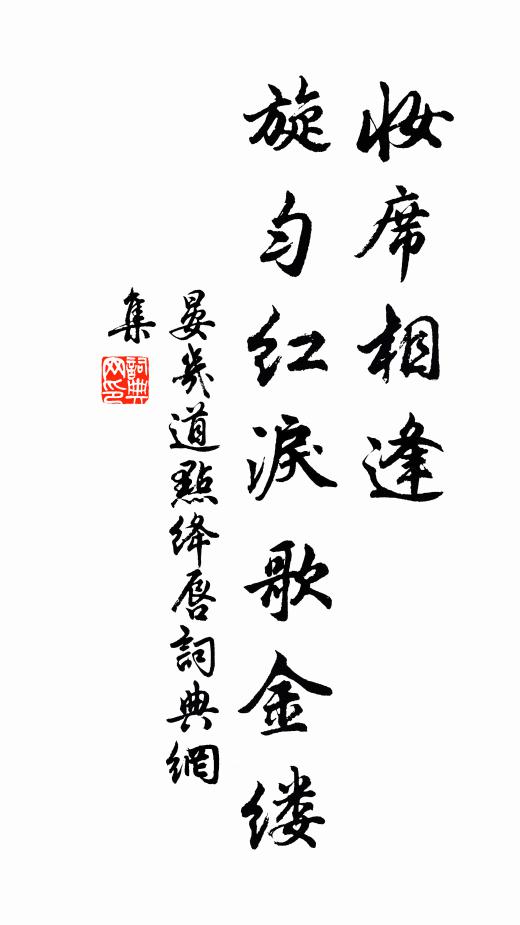 妆席相逢
旋匀红淚歌金缕
晏幾道點絳唇詞典網
集
詞典网印